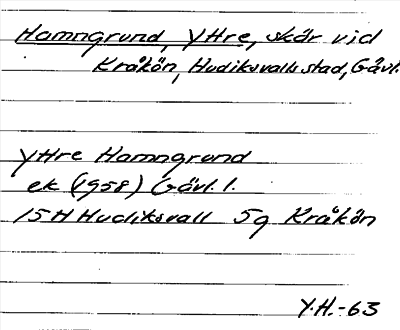 Hamngrund, Yttre, skär vid
Kråkön, Hudiksvalls stad, Gävl.
Yttre Hamngrund
ek (1958) Gävl. l.
15H Hudiksvall 5g Kråkön
Y.H.-63